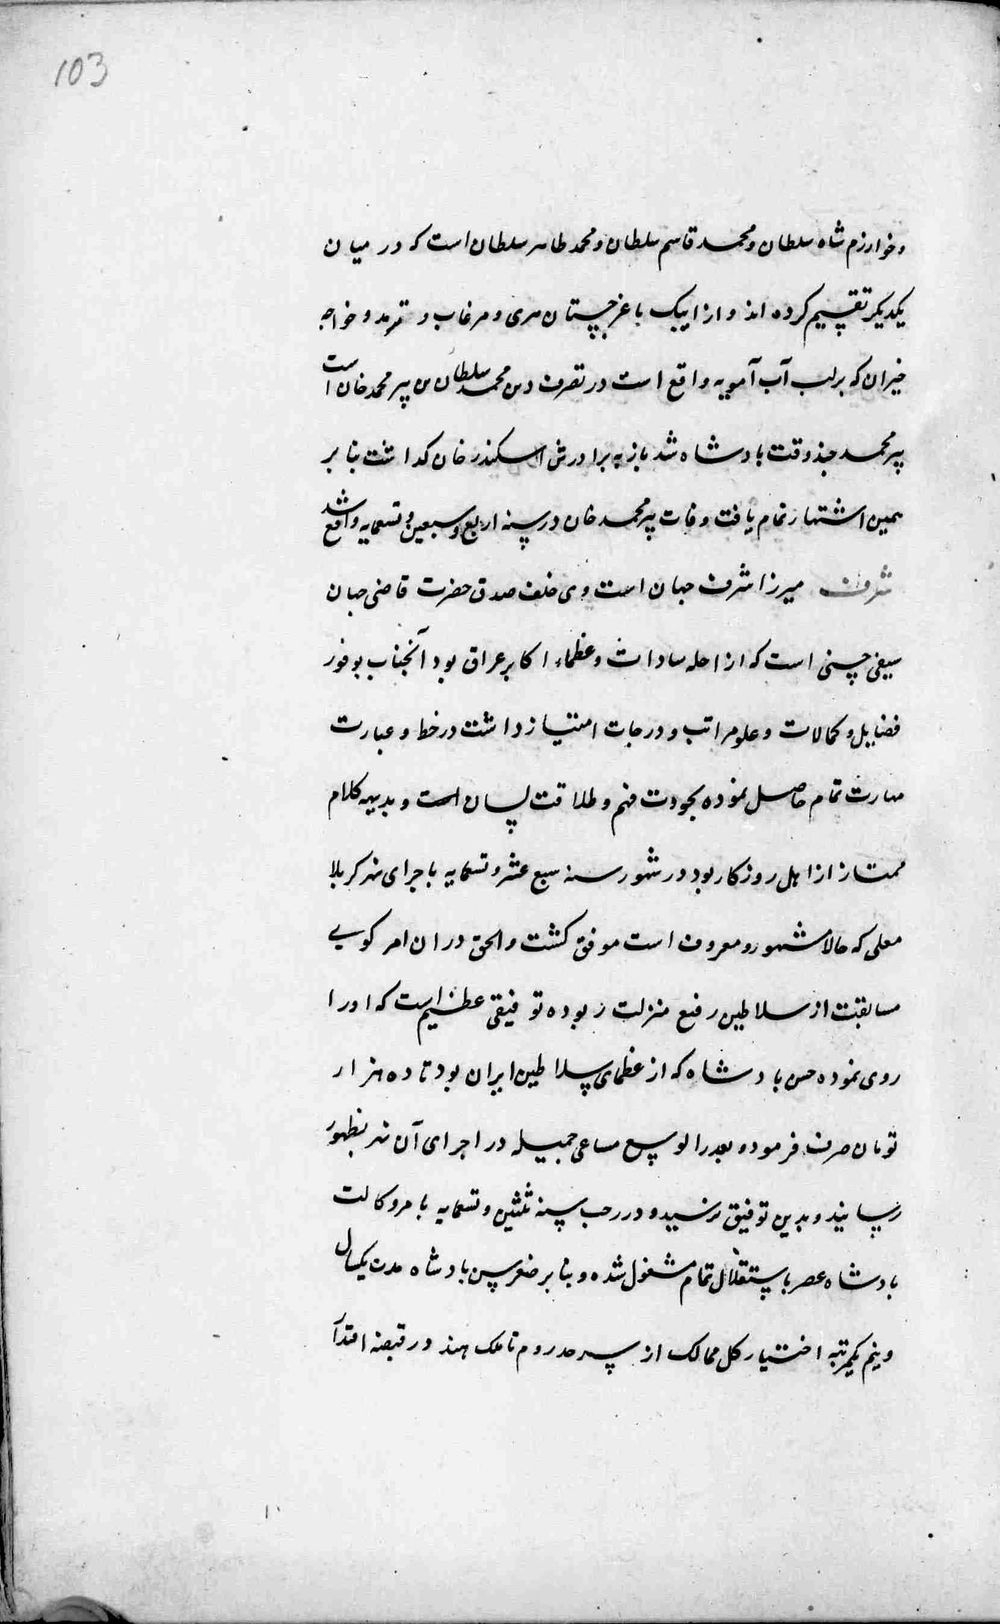 103
وخوارزم شاه سلطان و محمد قاسم سلطان و محمد طاهر سلطان است که در میان
یکدیکر تقسیم کرده اند و از ایبک تا غرجستان مری و مرغاب و ترمد و خواجه
خیران که بر لب آب آمویه واقع است در تصرف دین محمد سلطان بن پیر محمد خان است
پیر محمد چند وقت بادشاه شد باز به برادرش اسکندر خان کداشت بنا بر
همین اشتهار تمام یافت وفات پیر محمد خان در سنه اربع و سبعین و تسعمایه واقع شد
شرف میرزا شرف جهان است وی خلف صدق حضرت قاضی جهان
سیفی حسنی است که از اجله سادات و عظماء اکابر عراق بود آنجناب بوفور
فضایل و کمالات و علو مراتب و درجات امتیاز داشت در خط و عبارت
مهارت تمام حاصل نموده بجودت فهم و طلاقت لسان است و بدیهه کلام
ممتاز از اهل روزکار بود در شهور سنه سبع عشر و تسعمایه باجرای نهر کربلا
معلی که حالا مشهور و معروف است موفق کشت والحق در ان امر کویی
مسابقت از سلاطین رفیع منزلت ربوده توفیقی عظیم است که او را
روی نموده حسن بادشاه که از عظمای سلاطین ایران بود تا ده هزار
تومان صرف فرموده بقدر الوسع مساعی جمیله در اجرای آن نهر بظهور
رسانید و بدین توفیق نرسید و در رجب سنه ثلثین و تسعمایه بامر وکالت
بادشاه عصر باستقلال تمام مشغول شده و بنا بر صغر سن بادشاه مدت یکسال
و نیم یکمرتبه اختیار کل ممالک از سرحد روم تا ملک هند در قبضه اقتدا